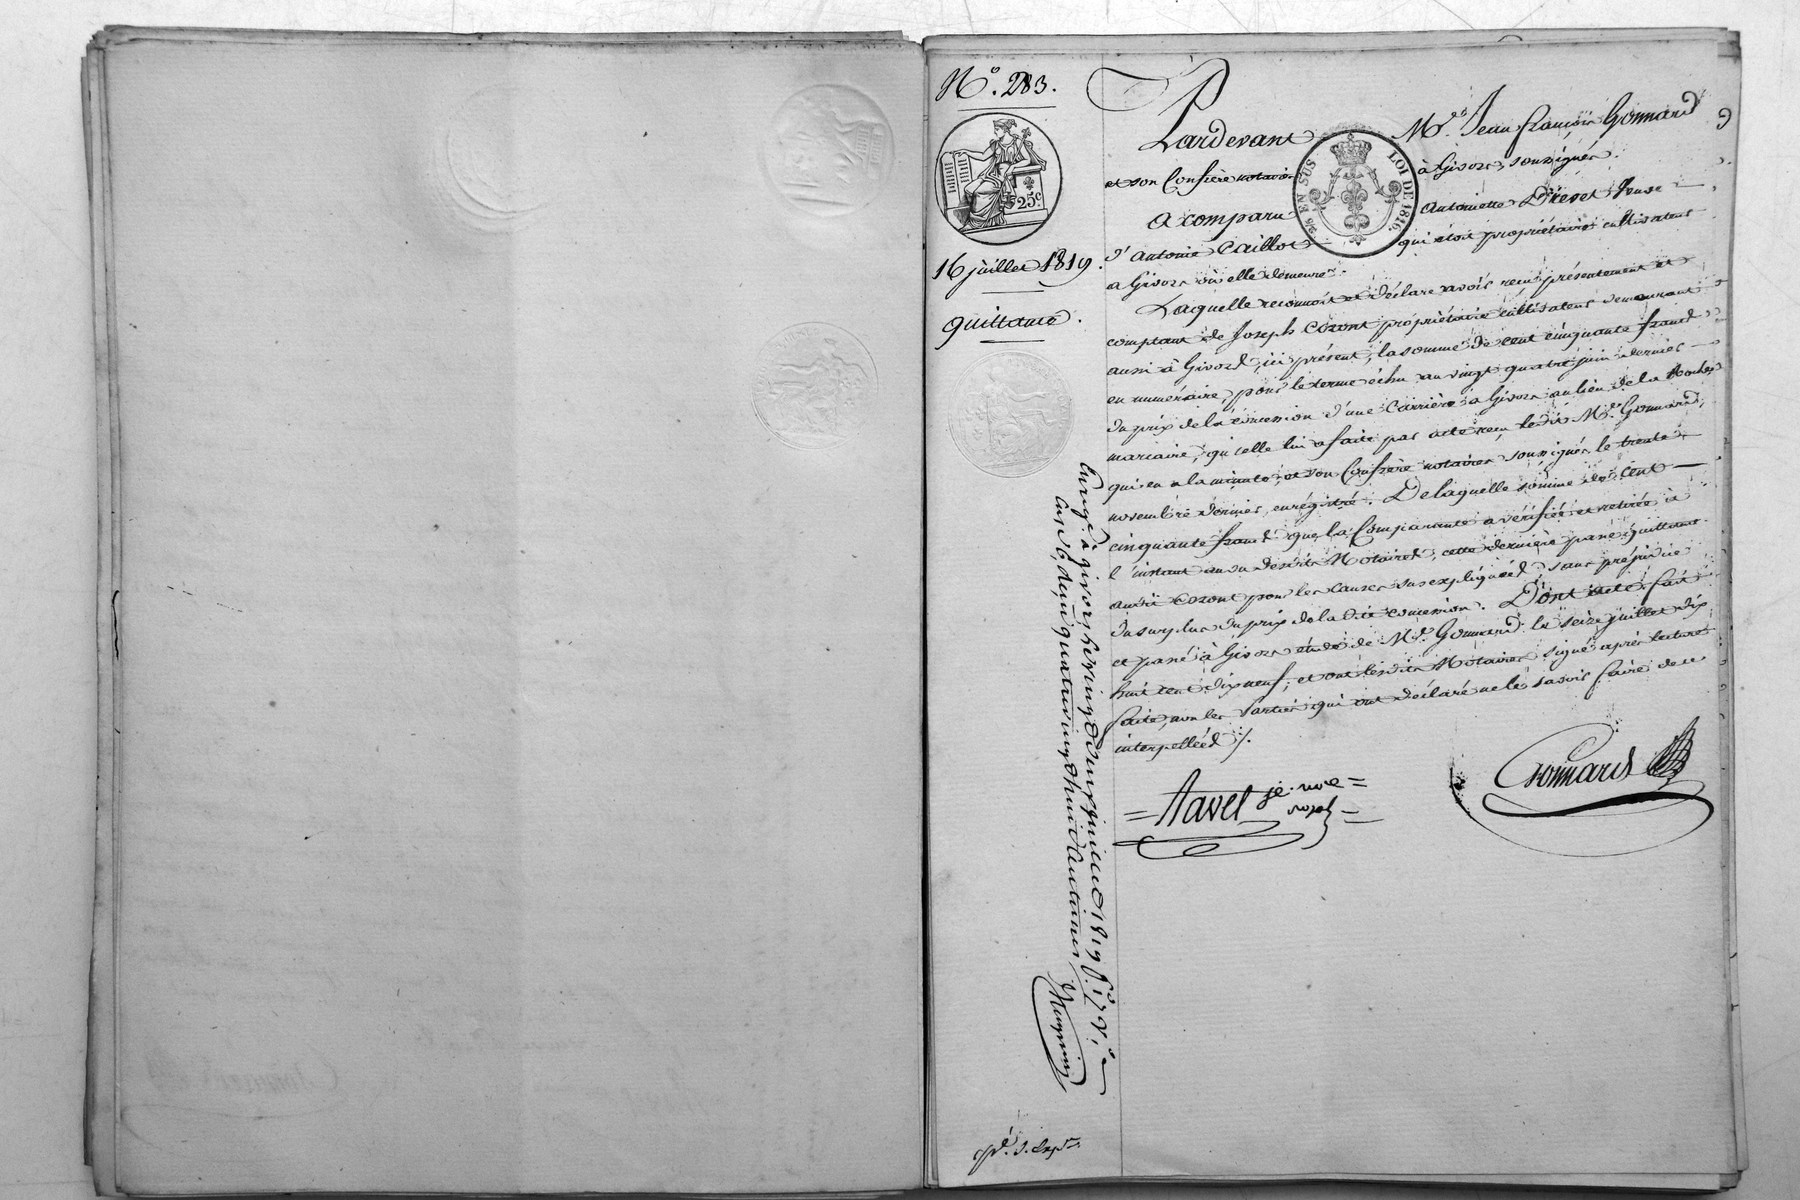 N.º 283.
525c
16 juillet 1819.
quittance.
Pardevant Me. Jean françois Gonnard
et son Confrère notaires à Givors, soussignés.
LOI DE 1816.
EN SUS
A comparu Antoinette Veuve
d'Antoine Caillot qui étoit propriétaire cultivateur
a Givors où elle demeure.
Laquelle reconnoit et déclare avoir reçu présentement et
comptant de Joseph Cozont propriétaire cultivateur demeurant
aussi à Givors, ici présent, la somme de cent cinquante francs
en numéraire, pour le terme échu au vingt quatre juin dernier
du prix de la concession d'une Carrière à Givors au lieu de la
qu'elle lui a faite par acte reçu ledit Me. Gonnard,
qui en a la minute, et son Confrère notaires soussignés le trente
novembre dernier, enrégistré. De laquelle somme de Cent
cinquante francs que la Comparante a vérifiée et retirée à
l'instant au vu desdits Notaires, cette dernière passe quittance
audit Cozont pour les causes susexpliquées, sans préjudice
du surplus du prix de la dite concession. Dont acte, fait
et passé à Givors étude de Me. Gonnard le seize juillet dix
huit cent dix neuf, et ont lesdits Notaires signé après lecture
faite, non les Parties qui ont déclaré ne le savoir faire de ce
interpellées /.
= Tavel =
Gonnard
Enregé à givors le vingt deux juillet 1819 fo. 17 Vo.
Case 6, reçu quatre vingt huit Centimes